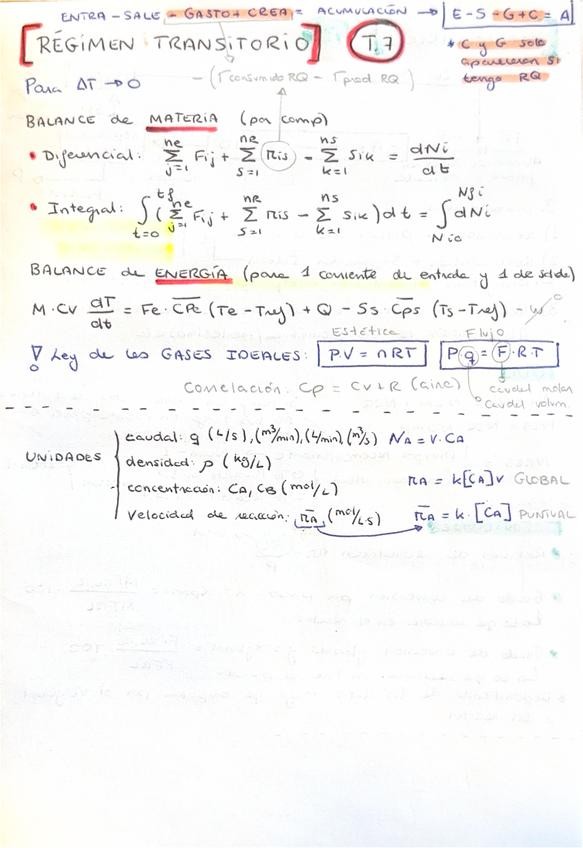 ENTRA - SALE - GASTO + CREA = ACUMULACIÓN → E - S - G + C = A
[RÉGIMEN TRANSITORIO] T.7
* C y G solo aparecerán si tengo RQ
Para ΔT → 0
- (r consumido RQ - r prod. RQ)
BALANCE de MATERIA (por comp)
• Diferencial: \sum_{j=1}^{ne} Fij + \sum_{s=1}^{nR} Ris - \sum_{k=1}^{ns} Sik = \frac{dNi}{dt}
• Integral: \int_{t=0}^{tf} (\sum_{j=1}^{ne} Fij + \sum_{s=1}^{nR} Ris - \sum_{k=1}^{ns} Sik) dt = \int_{Nio}^{Nfi} dNi
BALANCE de ENERGÍA (para 1 corriente de entrada y 1 de salida)
M · Cv \frac{dT}{dt} = Fe · \overline{CPe} (Te - Tref) + Q - Ss · \overline{Cps} (Ts - Tref) - W 0
Estética Flujo
Ley de los GASES IDEALES: PV = nRT P q = F · R · T
Correlación: Cp = Cv + R (aire)
caudal molar
caudal volum
UNIDADES
caudal: q (L/s), (m³/min), (L/min), (m³/s) NA = V · CA
densidad: ρ (kg/L)
concentración: CA, CB (mol/L)
rA = k[CA]V GLOBAL
velocidad de reacción: \overline{rA}, (mol/L·s) → \overline{rA} = k · [CA] PUNTUAL